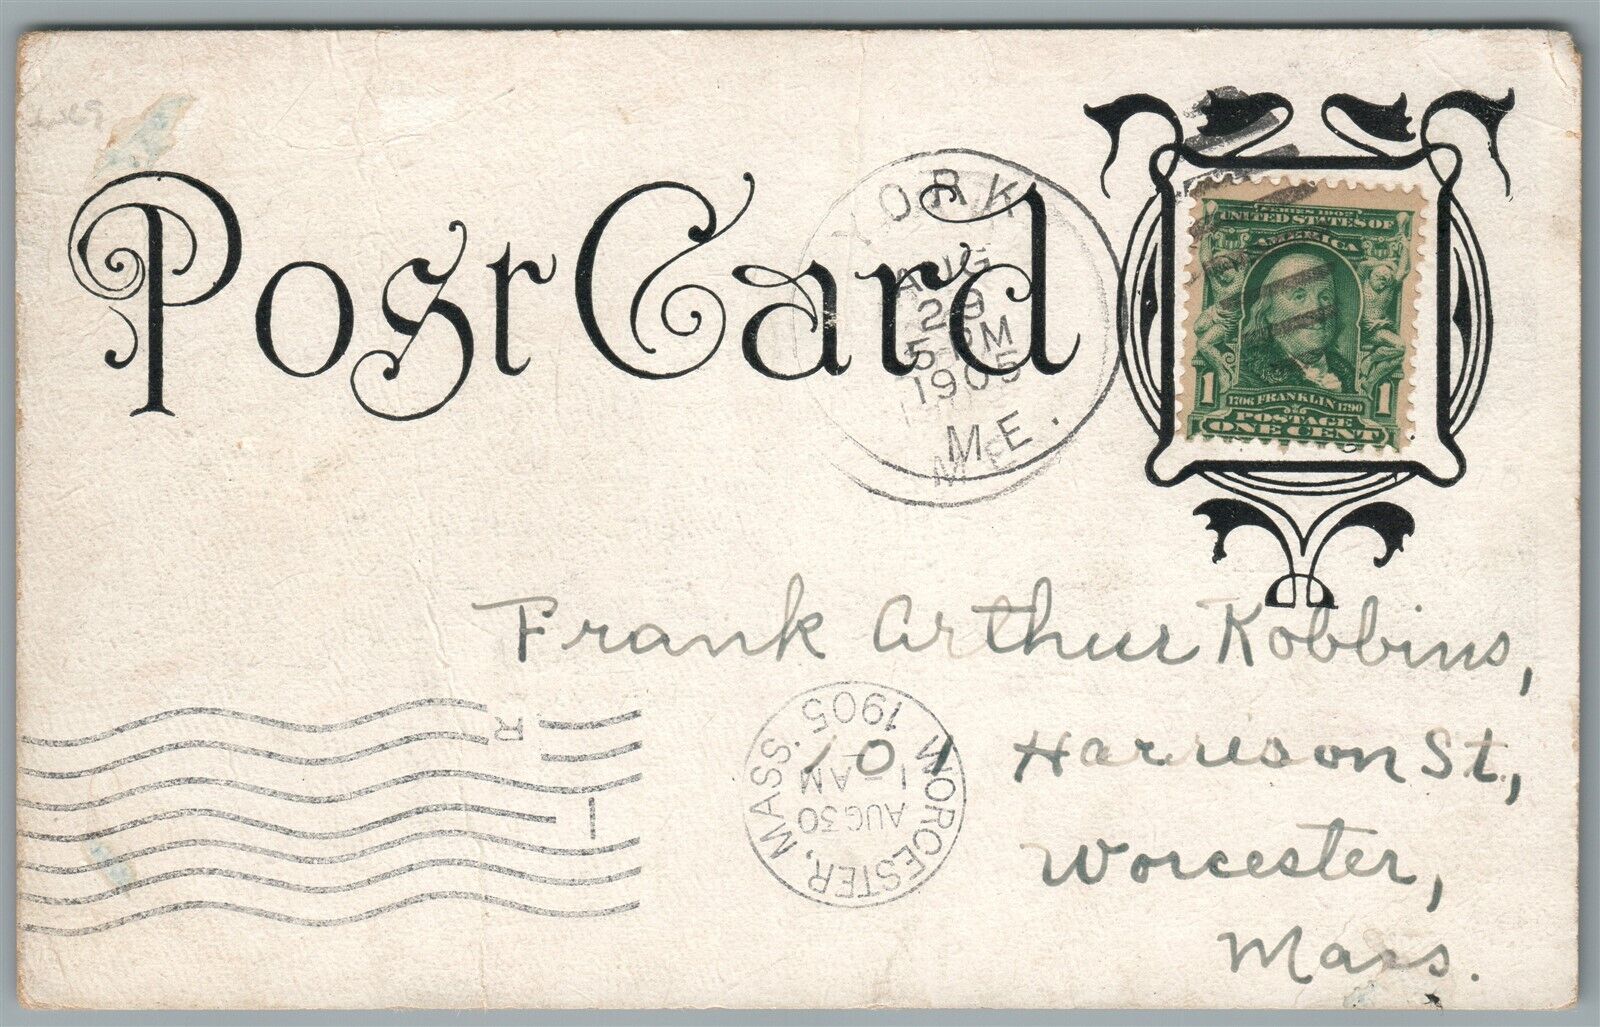 Post Card
YORK
AUG
29
5-PM
1905
ME.
SERIES 1902
UNITED STATES OF
AMERICA
1 1706 FRANKLIN 1790 1
POSTAGE
ONE CENT
Frank Arthur Robbins,
101 Harrison St,
Worcester,
Mass.
WORCESTER, MASS.
AUG 30
1-AM
1905
R
1